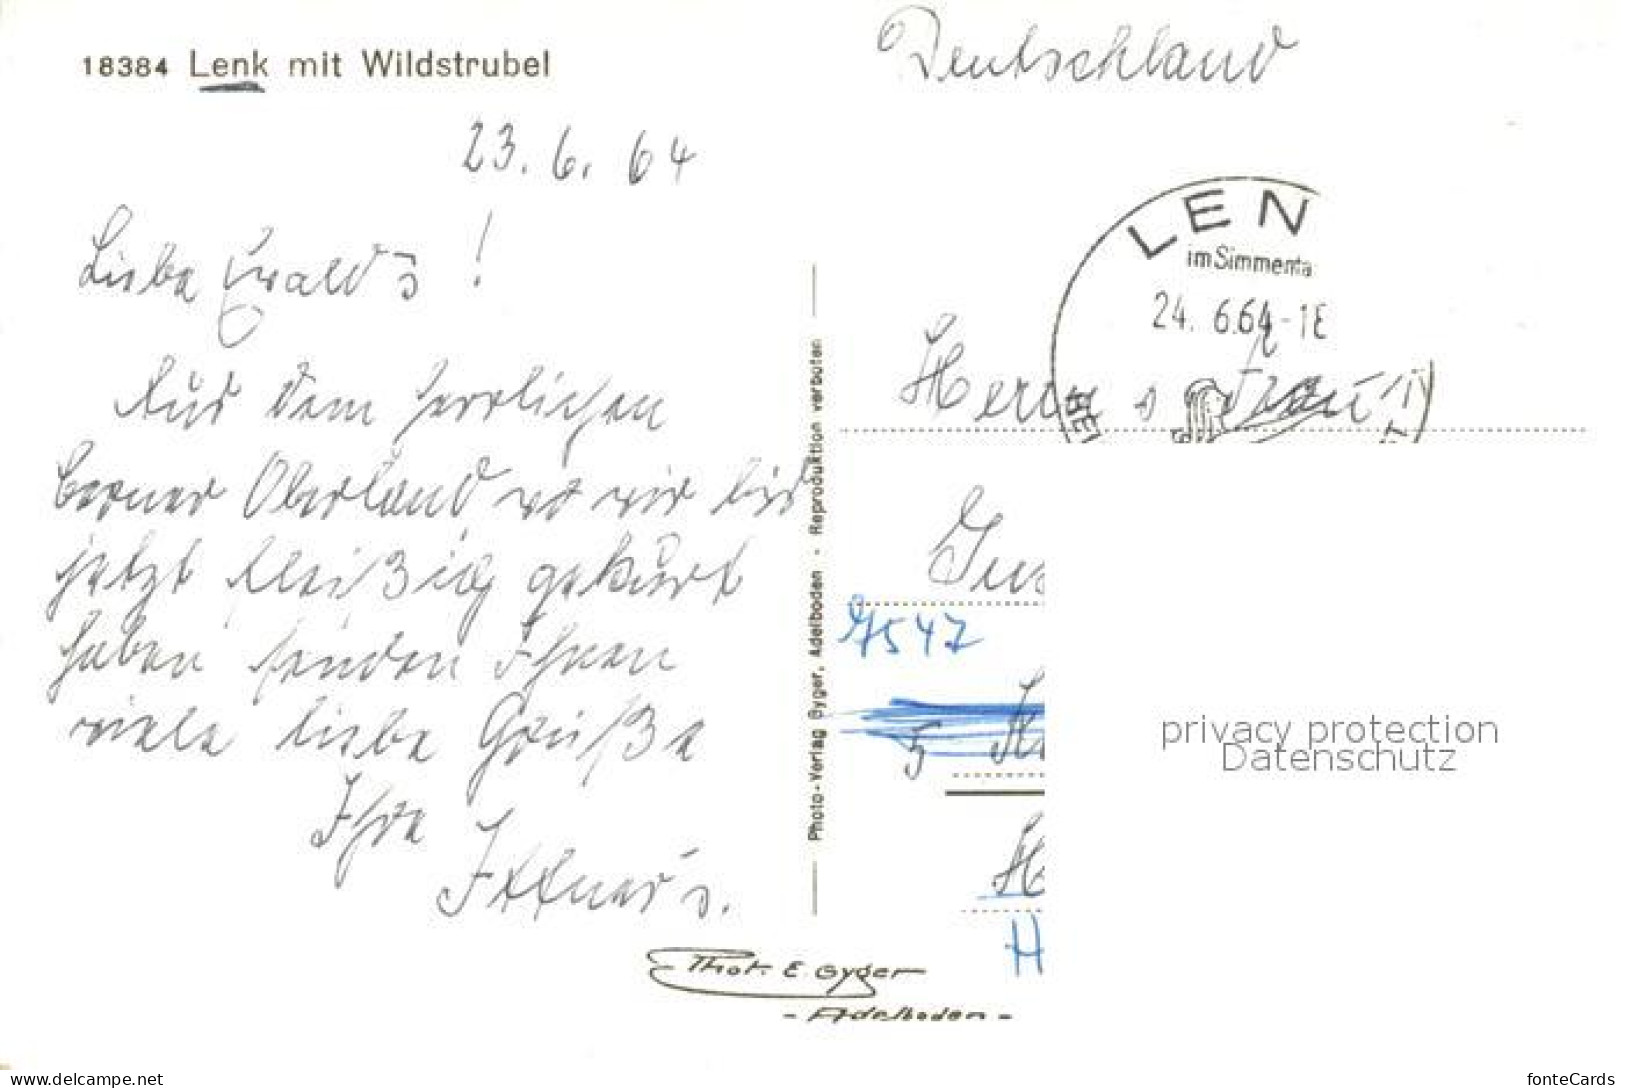 18384 Lenk mit Wildstrubel
23. 6. 64
Liebe Ewald's!
Aus dem herrlichen
Berner Oberland wo wir bis
jetzt fleißig gekurt
haben senden Ihnen
viele liebe Grüße
Ihre
Photo-Verlag Gyger, Adelboden - Reproduktion verboten
Phot. E. Gyger
- Adelboden -
Deutschland
LEN
im Simmenta
24. 6.64-18
Herrn u Frau
5
H
privacy protection
Datenschutz
www.delcampe.net
fonteCards